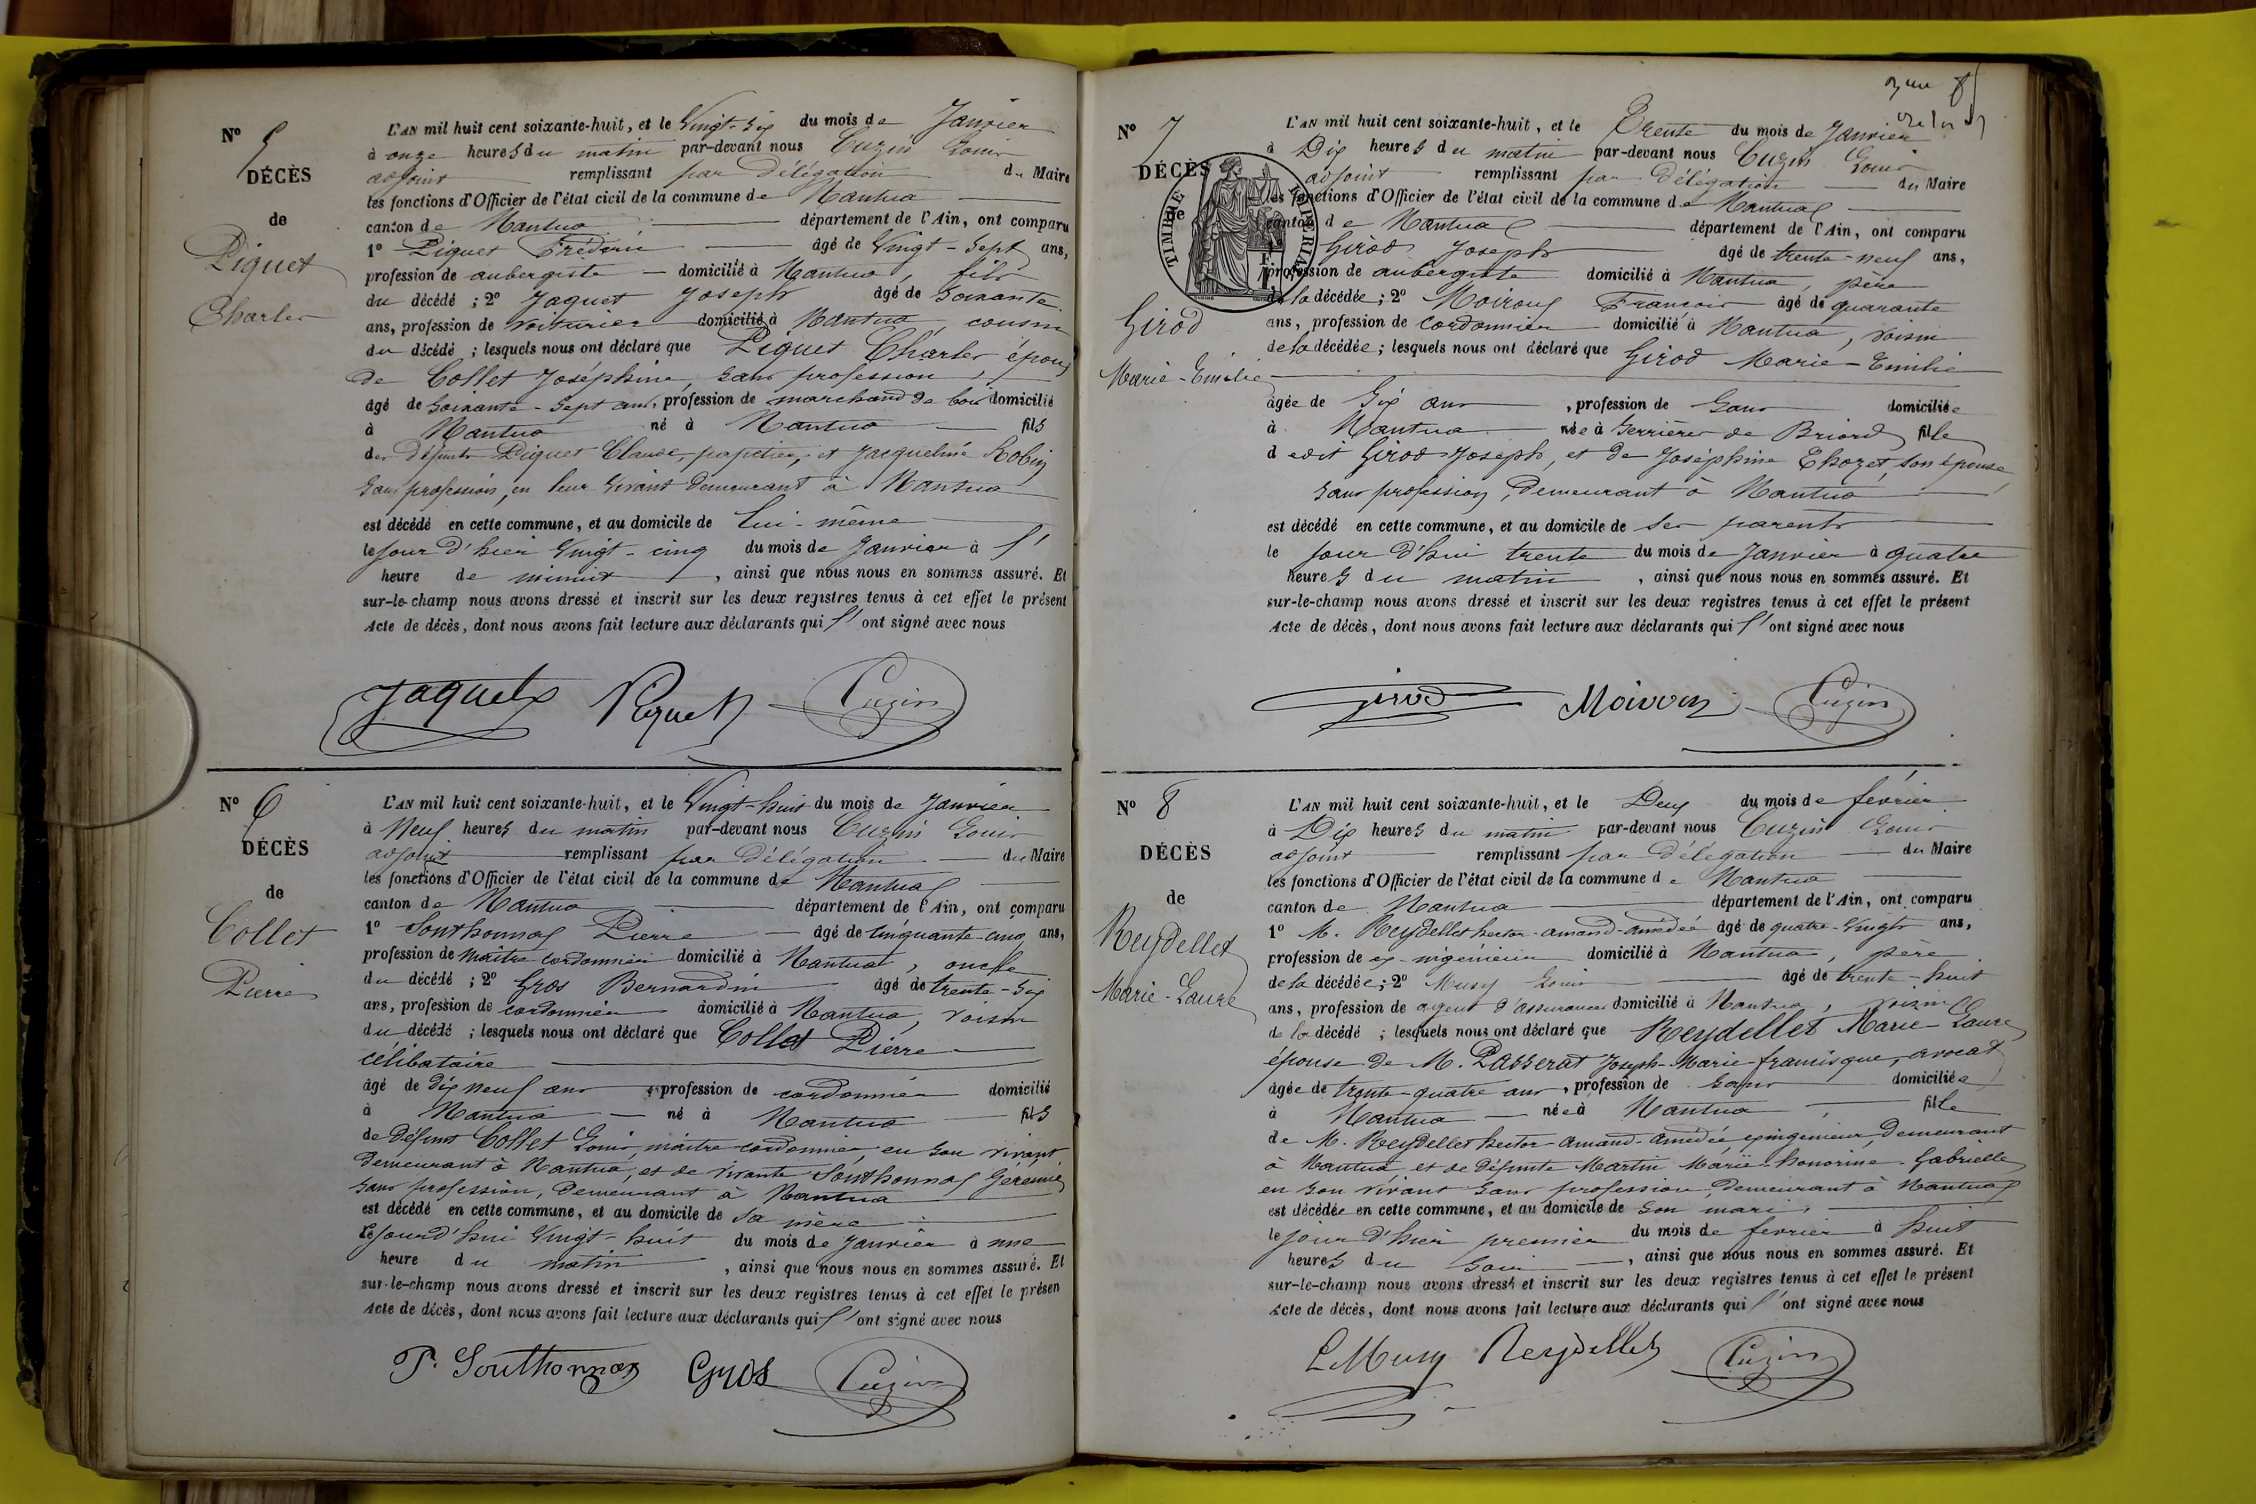 N° 5
DÉCÈS
de
Piquet
Charles
L'AN mil huit cent soixante-huit, et le Vingt-six du mois de Janvier
à onze heures du matin par-devant nous Cuzin Louis
adjoint remplissant par délégation du Maire
les fonctions d'Officier de l'état civil de la commune de Nantua
canton de Nantua département de l'Ain, ont comparu
1° Piquet Frédéric âgé de Vingt-sept ans,
profession de aubergiste domicilié à Nantua, fils
du décédé ; 2° Jaquet Joseph âgé de soixante
ans, profession de voiturier domicilié à Nantua, cousin
du décédé ; lesquels nous ont déclaré que Piquet Charles, époux
de Collet Joséphine, sans profession,
âgé de soixante-sept ans, profession de marchand de bois domicilié
à Nantua né à Nantua fils
des défunts Piquet Claude, papetier, et Jacqueline Robin
sans profession, en leur vivant demeurant à Nantua
est décédé en cette commune, et au domicile de lui-même
le jour d'hier Vingt-cinq du mois de Janvier à l'
heure de minuit, ainsi que nous nous en sommes assuré. Et
sur-le-champ nous avons dressé et inscrit sur les deux registres tenus à cet effet le présent
Acte de décès, dont nous avons fait lecture aux déclarants qui l'ont signé avec nous
Jaquet Piquet Cuzin
N° 6
DÉCÈS
de
Collet
Pierre
L'AN mil huit cent soixante-huit, et le Vingt-huit du mois de Janvier
à Neuf heures du matin par-devant nous Cuzin Louis
adjoint remplissant par délégation du Maire
les fonctions d'Officier de l'état civil de la commune de Nantua
canton de Nantua département de l'Ain, ont comparu
1° Southonnax Pierre âgé de cinquante-cinq ans,
profession de maître cordonnier domicilié à Nantua, oncle
du décédé ; 2° Gros Bernardin âgé de trente-six
ans, profession de cordonnier domicilié à Nantua, voisin
du décédé ; lesquels nous ont déclaré que Collet Pierre
célibataire
âgé de dix neuf ans, profession de cordonnier domicilié
à Nantua né à Nantua fils
de défunt Collet Louis, maître cordonnier, en son vivant
demeurant à Nantua, et de vivante Southonnax
sans profession, demeurant à Nantua
est décédé en cette commune, et au domicile de sa mère
le jourd'hui Vingt-huit du mois de Janvier à une
heure du matin, ainsi que nous nous en sommes assuré. Et
sur-le-champ nous avons dressé et inscrit sur les deux registres tenus à cet effet le présen
Acte de décès, dont nous avons fait lecture aux déclarants qui l'ont signé avec nous
P. Southonnax Gros Cuzin
N° 7
DÉCÈS
de
TIMBRE IMPERIAL
Girod
Marie-Emilie
L'AN mil huit cent soixante-huit, et le Trente du mois de Janvier
à Dix heures du matin par-devant nous Cuzin Louis
adjoint remplissant par délégation du Maire
les fonctions d'Officier de l'état civil de la commune de Nantua
canton de Nantua département de l'Ain, ont comparu
Girod Joseph âgé de trente-neuf ans,
profession de aubergiste domicilié à Nantua, père
de la décédée ; 2° Moiroux François âgé de quarante
ans, profession de cordonnier domicilié à Nantua, voisin
de la décédée ; lesquels nous ont déclaré que Girod Marie-Emilie
âgée de Six ans, profession de Sans domiciliée
à Nantua née à Serrières de Briord fille
dedit Girod Joseph, et de Joséphine Chozet, son épouse,
sans profession, demeurant à Nantua
est décédé en cette commune, et au domicile de ses parents
le jour d'hui trente du mois de Janvier à quatre
heures du matin, ainsi que nous nous en sommes assuré. Et
sur-le-champ nous avons dressé et inscrit sur les deux registres tenus à cet effet le présent
Acte de décès, dont nous avons fait lecture aux déclarants qui l'ont signé avec nous
Girod Moiroux Cuzin
N° 8
DÉCÈS
de
Reydellet
Marie-Laure
L'AN mil huit cent soixante-huit, et le Deux du mois de février
à Dix heures du matin par-devant nous Cuzin Louis
adjoint remplissant par délégation du Maire
les fonctions d'Officier de l'état civil de la commune de Nantua
canton de Nantua département de l'Ain, ont comparu
1° M. Reydellet hector-amand-amédée âgé de quatre-vingts ans,
profession de ex-ingénieur domicilié à Nantua, père
de la décédée ; 2° Musy Louis âgé de trente-huit
ans, profession de agent d'assurances domicilié à Nantua, voisin
de la décédé ; lesquels nous ont déclaré que Reydellet Marie-Laure
épouse de M. Passerat Joseph-Marie-francisque, avocat
âgée de trente-quatre ans, profession de sans domiciliée
à Nantua née à Nantua, fille
de M. Reydellet hector-amand-amédée exingénieur, demeurant
à Nantua et de défunte Martin Marie-honorine-Gabrielle
en son vivant sans profession, demeurant à Nantua
est décédée en cette commune, et au domicile de son mari,
le jour d'hier premier du mois de fevrier à huit
heures du soir, ainsi que nous nous en sommes assuré. Et
sur-le-champ nous avons dressé et inscrit sur les deux registres tenus à cet effet le présent
Acte de décès, dont nous avons fait lecture aux déclarants qui l'ont signé avec nous
L. Musy Reydellet Cuzin